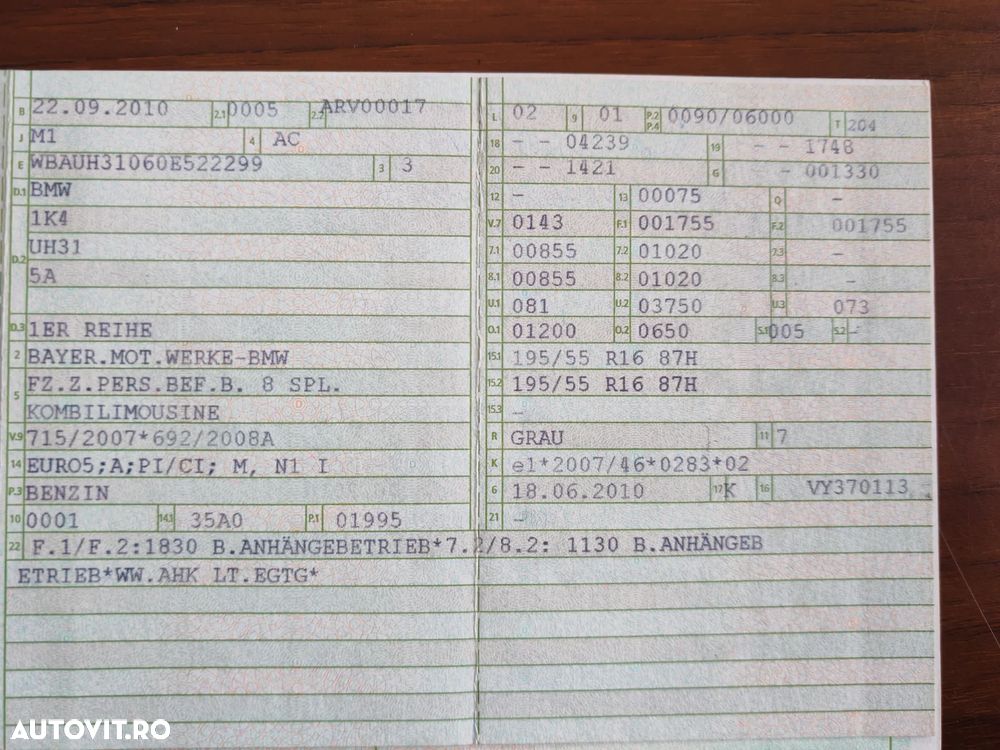 B 22.09.2010 2.1 0005 2.2 ARV00017
J M1 4 AC
E WBAUH31060E522299 3 3
D.1 BMW
D.2 1K4
UH31
5A
D.3 1ER REIHE
2 BAYER.MOT.WERKE-BMW
5 FZ.Z.PERS.BEF.B. 8 SPL.
KOMBILIMOUSINE
V.9 715/2007*692/2008A
14 EURO5;A;PI/CI; M, N1 I
P.3 BENZIN
10 0001 14.1 35A0 P.1 01995
L 02 9 01 P.2 P.4 0090/06000 T 204
18 - - 04239 19 - - 1748
20 - - 1421 G - 001330
12 - 13 00075 Q -
V.7 0143 F.1 001755 F.2 001755
7.1 00855 7.2 01020 7.3 -
8.1 00855 8.2 01020 8.3 -
U.1 081 U.2 03750 U.3 073
O.1 01200 O.2 0650 S.1 005 S.2 -
15.1 195/55 R16 87H
15.2 195/55 R16 87H
15.3 -
R GRAU 11 7
K e1*2007/46*0283*02
6 18.06.2010 17 K 16 VY370113 -
21 -
22 F.1/F.2:1830 B.ANHÄNGEBETRIEB*7.2/8.2: 1130 B.ANHÄNGEB
ETRIEB*WW.AHK LT.EGTG*
AUTOVIT.RO